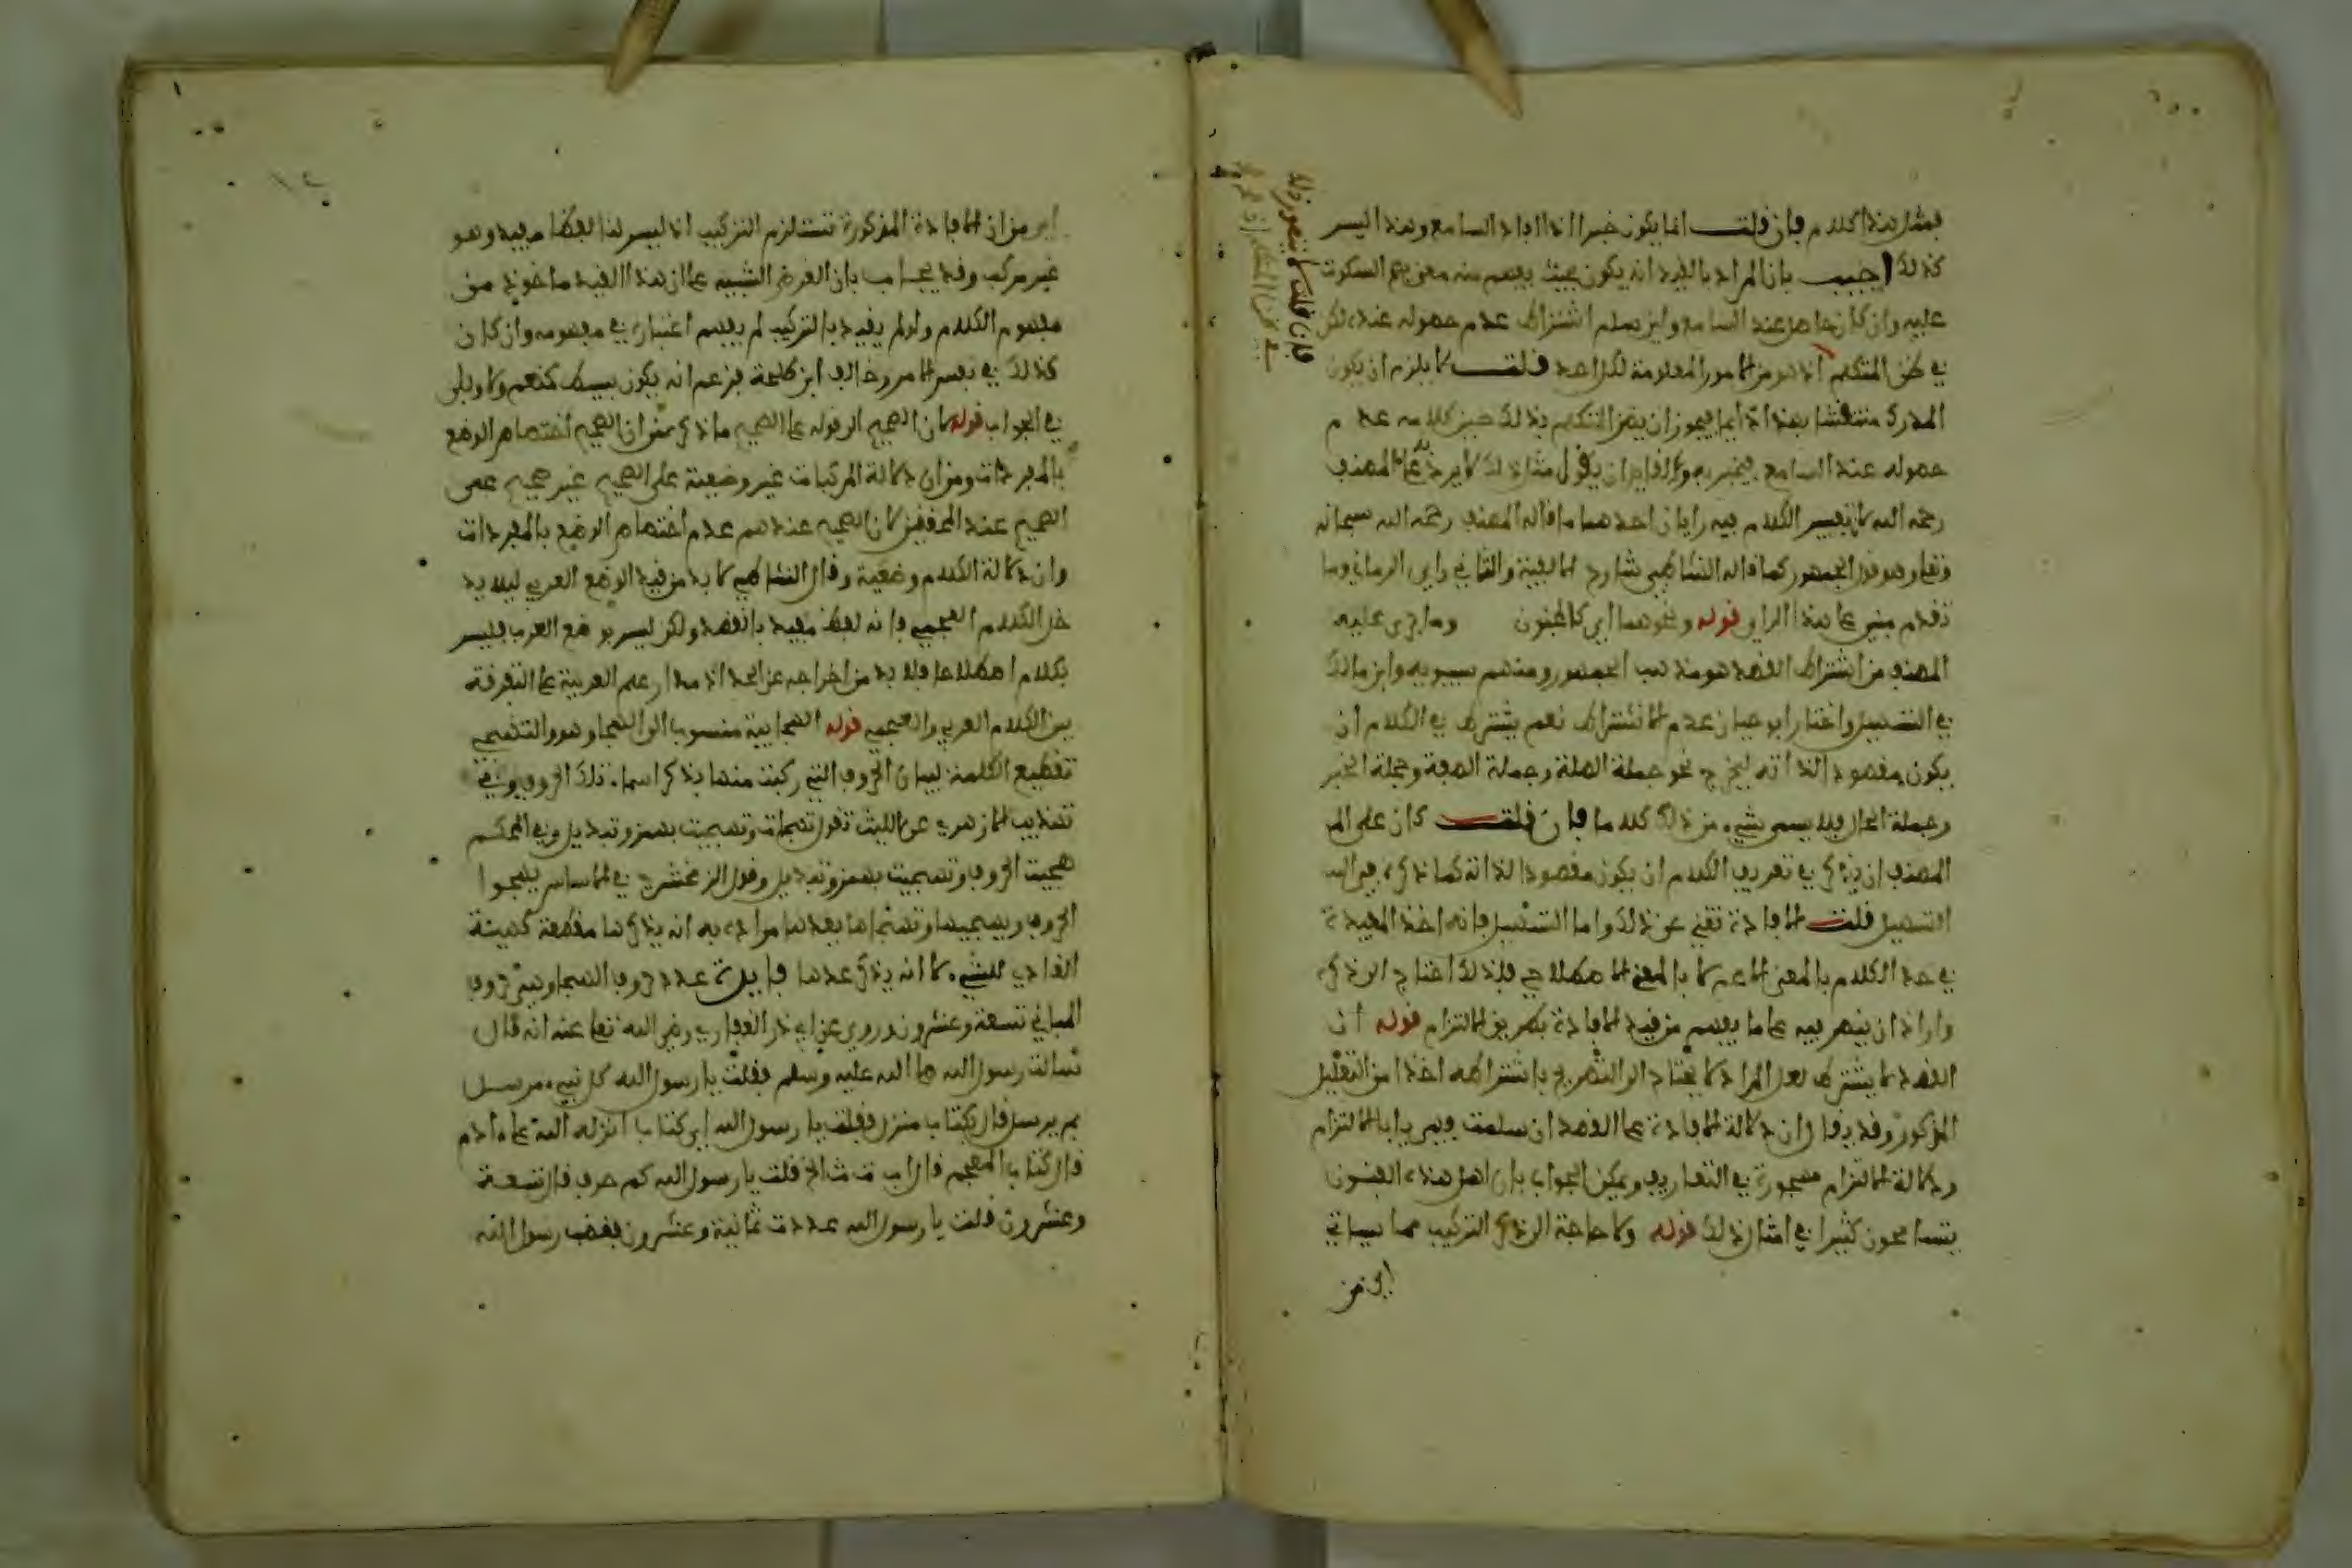 فمثل هذا كلام فإن قلت انما يكون خبرا اذا افاد السامع وهذا ليس
كذلك اجيب بان المراد بالفيد انه يكون بحيث يفهم منه معنى يصح السكوت
عليه وان كان حاصل عند السامع ولين سلم اشتراط عدم حصوله عنده لكن
في ظن المتكلم اذ هو من الامور المعلومة لكل احد قلت لا يلزم ان يكون
المدرك منتقشا بهذا دايما فيجوز ان يظن المتكلم بذلك حين كلامه عدم
حصوله عند السامع فيخبر به ولقايل ان يقول مثل ذلك لا يرد على المصنف
رحمه الله لان تفسير الكلام فيه رايان احدهما ما قاله المصنف رحمه الله سبحانه
وتعلى وهو قول الجمهور كما قاله الشاطبي شارح الالفية والثاني راي الرماني وما
تقدم مبني على هذا الراي قوله ونحوهما اي كالمجنون وما جرى عليه
المصنف من اشتراط القصد هو مذهب الجمهور ومنهم سيبويه وابن مالك
في التسهيل واختار ابو حيان عدم الاشتراط نعم يشترط في الكلام ان
يكون مقصودا لذاته ليخرج نحو جملة الصلة وجملة الصفة وجملة الخبر
وجملة الحال فلا يسمى شيء من ذلك كلاما فإن قلت كان على الم
المصنف ان يذكر في تعريف الكلام ان يكون مقصودا لذاته كما ذكره في
التسهيل قلت الافادة تغني عن ذلك واما التسهيل فانه اخذ المفيدة
في حد الكلام بالمعنى الاعم لا بالمعنى الاصطلاحي فلذلك احتاج الى ذكره
واراد ان ينص فيه على ما يفهم من قيد الافادة بطريق الالتزام قوله ان
القصد لا يشترط لعل المراد لا يحتاج الى التصريح باشتراطه اخذا من التعليل
المذكور وقد يقال ان دلالة الافادة على القصد ان سلمت فهي بالالتزام
ودلالة الالتزام مهجورة في التعاريف ويمكن الجواب بان اهل هذه الفنون
يتسامحون كثيرا في امثال ذلك قوله ولا حاجة الى ذكر التركيب مما سياتي
اي من
فان قلت لا يتصور ذلك
اي من ان الافادة المذكورة تستلزم التركيب اذ ليس لنا لفظ مفيد وهو
غير مركب وقد يجاب بان الغرض التنبيه على ان هذا القيد ماخوذ من
مفهوم الكلام ولو لم يقيد بالتركيب لم يفهم اعتباره في مفهومه وان كان
كذلك في نفس الامر وخالف ابن طلحة فزعم انه يكون بسيطا كنعم ولا وبلى
في الجواب قوله لان الصحيح الى قوله على الصحيح ما ذكر من ان الصحيح اختصاص الوضع
بالمفردات ومن ان دلالة المركبات غير وضعية على الصحيح غير صحيح على
الصحيح عند المحققين لان الصحيح عندهم عدم اختصاص الوضع بالمفردات
وان دلالة الكلام وضعية وقال الشاطبي لا بد من قيد الوضع العربي ليلا يد
خل الكلام العجمي فانه لفظ مفيد بالقصد ولكن ليس بوضع العرب فليس
بكلام اصطلاحا فلا بد من اخراجه عن الحد اذ مدار علم العربية على التفرقة
بين الكلام العربي والعجمي قوله الهجائية منسوب الى الهجا وهو والتهجي
تقطيع الكلمة لبيان الحروف التي ركبت منها بذكر اسماء تلك الحروف وفي
تهذيب الازهري عن الليث تقول تهجات وتهجيت بهمز وتبديل وفي المحكم
هجيت الحروف وتهجيت بهمز وتبديل وقول الزمخشري في الاساس يهجوا
الحروف ويهجيها وتهجاها يعدها مراده به انه يذكرها مقطعة كهيئة
العادي للشيء لا انه يذكر عددها فايدة عدد حروف الهجا وهي حروف
المباني تسعة وعشرون وروي عن ابي ذر الغفاري رضي الله تعلى عنه انه قال
سالت رسول الله صلى الله عليه وسلم فقلت يا رسول الله كل نبيء مرسل
بم يرسل قال بكتاب منزل فقلت يا رسول الله اي كتاب انزله الله على ءادم
قال كتاب المعجم قال ا ب ت ث الخ قلت يا رسول الله كم حرف قال تسعة
وعشرون قلت يا رسول الله عددت ثمانية وعشرون فغضب رسول الله